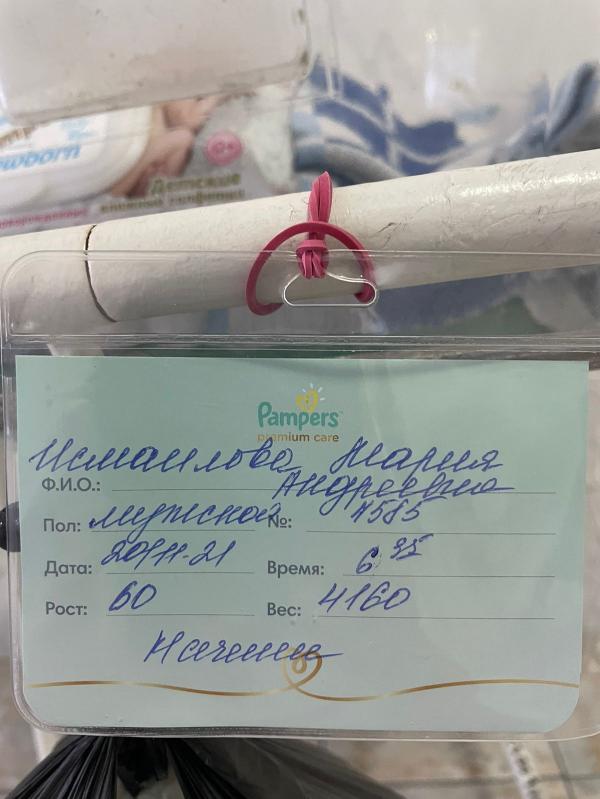 newborn
0+
Детские
Pampers
premium care
Исмаилова Мария
Ф.И.О.: Андреевна
Пол: мужской №: 7585
Дата: 20/11-21 Время: 6 35
Рост: 60 Вес: 4160